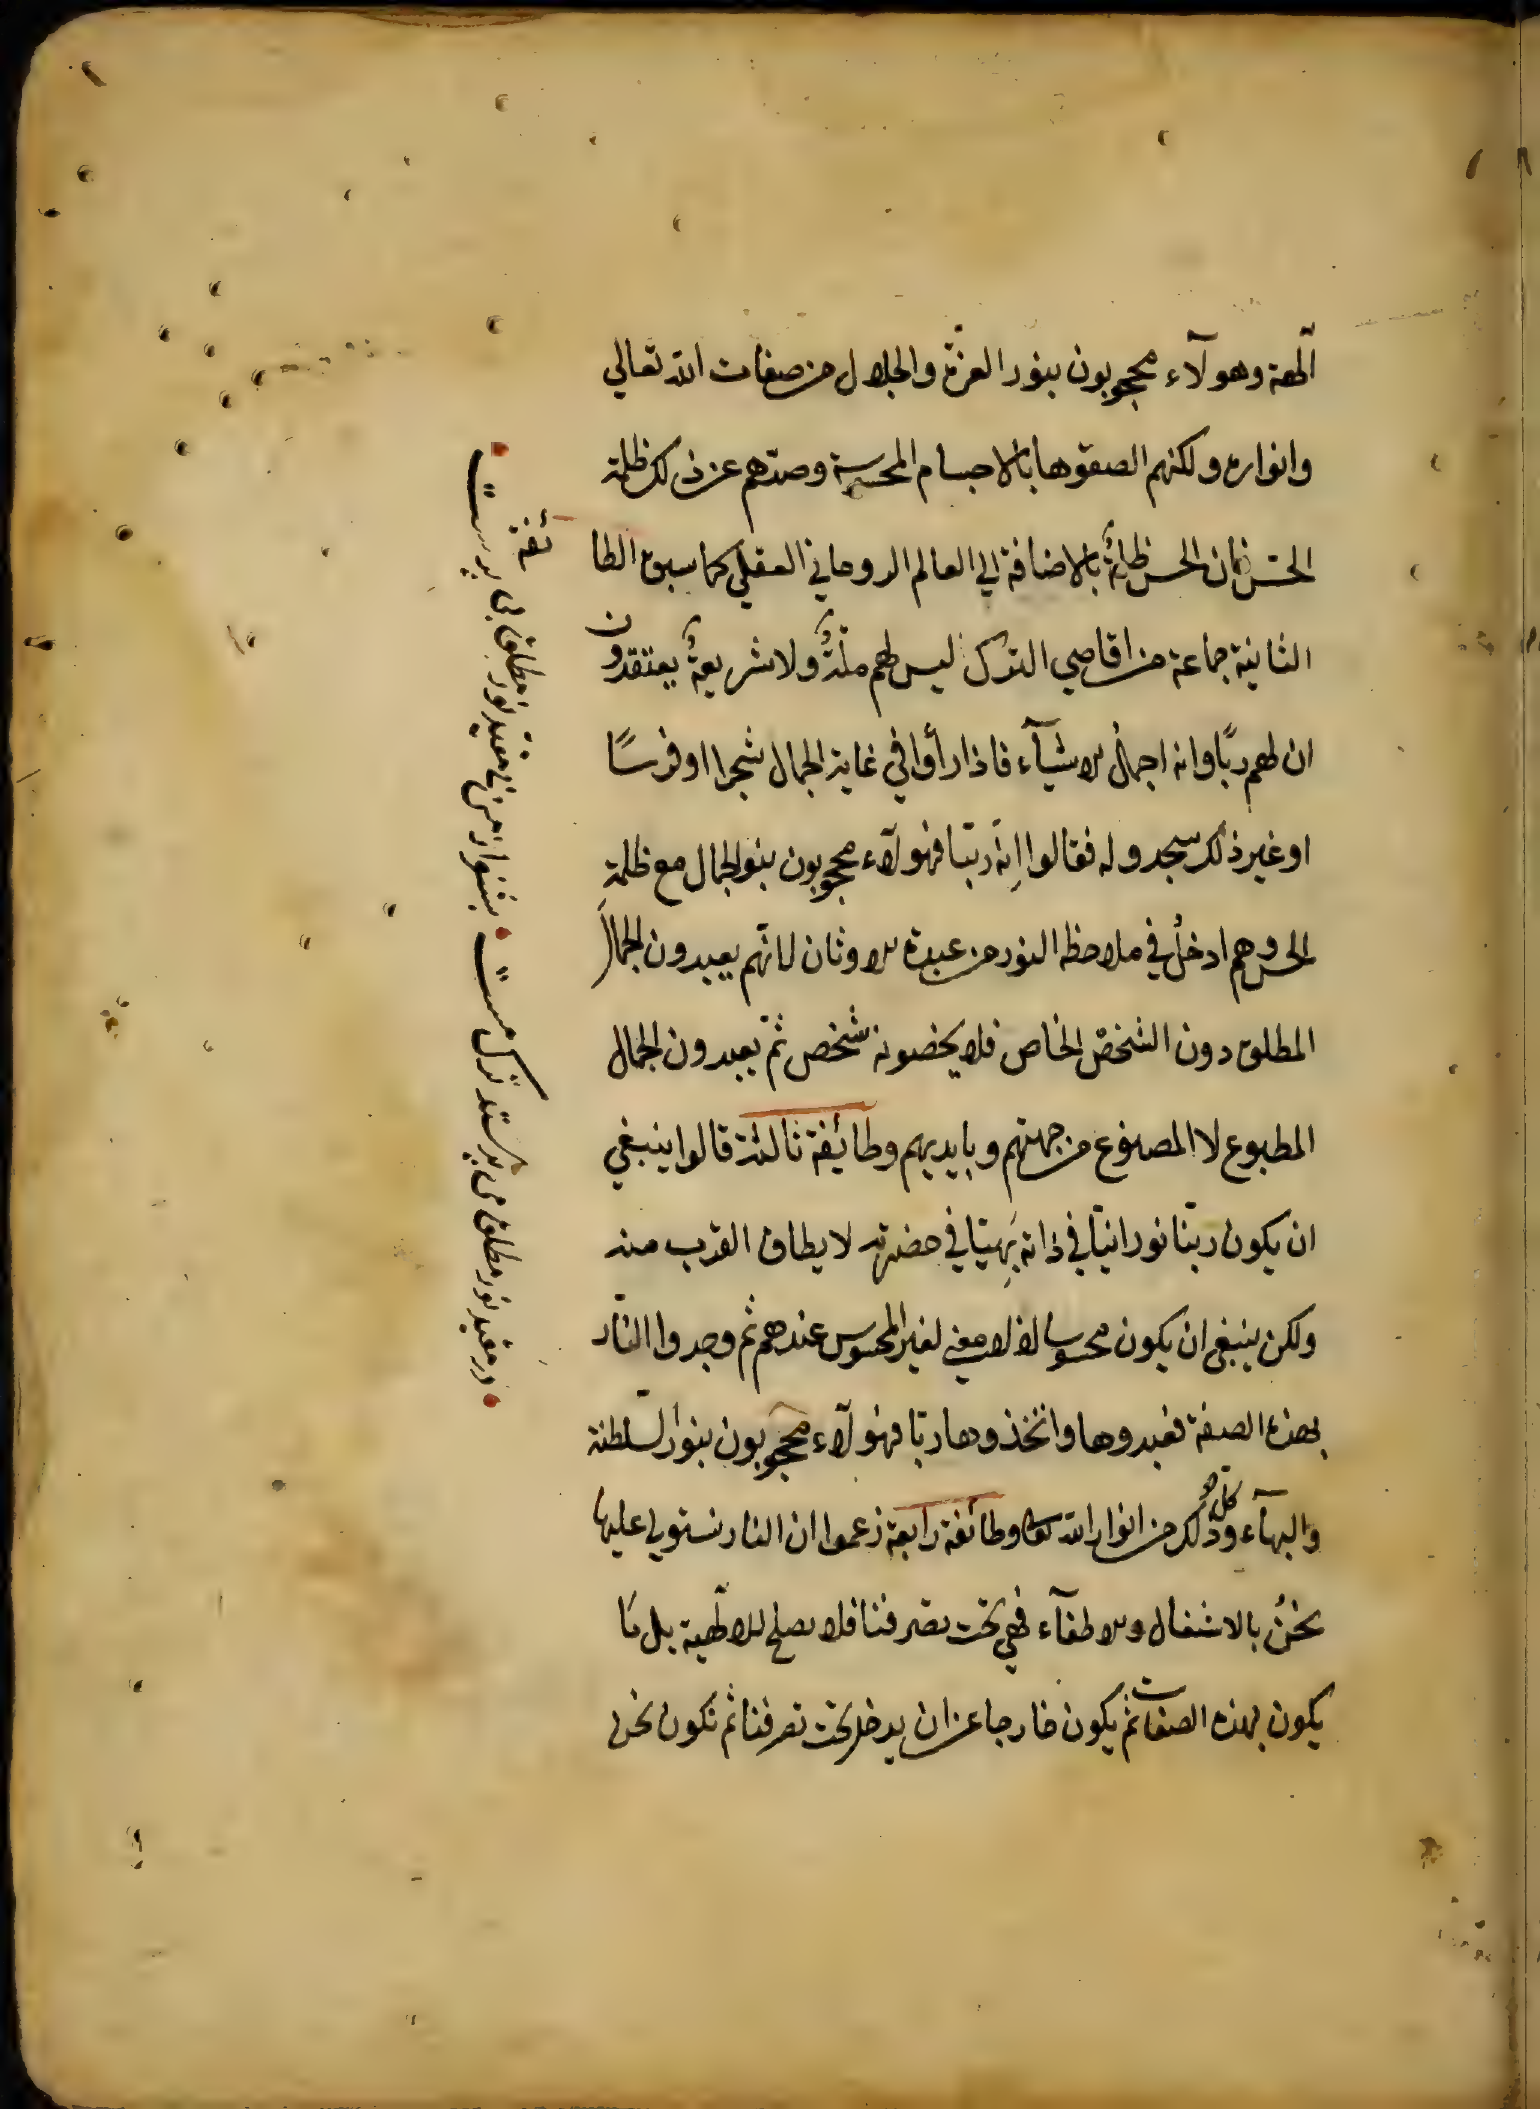 آلهة وهولآء محجوبون بنور العزة والجلال من صفات الله تعالي
وانواره ولكنهم الصقوها بالاجسام المحسوسة وصدهم عن ذلك ظلمة
الحس فان الحس ظلمةٌ بالاضافة الي العالم الروحاني العقلي كما سبق الطا
ئفة
الثانية جماعة من اقاصي الترك ليس لهم ملّةٌ ولا شريعةٌ يعتقدون
ان لهم ربًا وانه اجملُ الاشيآء فاذا رأوا في غاية الجمال شجرا او فرسًا
او غير ذلك سجدوله فقالوا اِنّه ربّنا فهولآء محجوبون بنور الجمال مع ظلمةِ
الحس وهم ادخلُ في ملاحظة النور من عبدة الاوثان لانهم يعبدون الجمالَ
المطلق دون الشخص الخاص فلا يخصونه شخص ثمّ يعبدون الجمال
المطبوع لا المصنوع من جهتهم وبايديهم وطائفة ثالثة قالوا ينبغي
ان يكون ربّنا نورانيّا في ذاته بَهِيّا في حضرته لا يطاق القرب منه
ولكن ينبغي ان يكون محسوسا اذ لا معني لغير المحسوس عندهم ثم وجدوا النّار
بهذه الصفة فعبدوها واتخذوها ربّا فهولآء محجوبون بنور السّلطنة
والبهآء وكلّ ذلك من انوار الله تعالى وطائفة رابعة زعموا ان النار نستولي عليها
نحنُ بالاشعال والاطفآء فهي تحت تصرفنا فلا يصلح للالٰهية بل مَا
يكون بهذه الصفات ثم يكون خارجا عن ان يدخل تحت تصرفنا ثم نكون نحن
مقيد نور مطلق پرست
در مقيد نور مطلق مي پرستد ترك مست